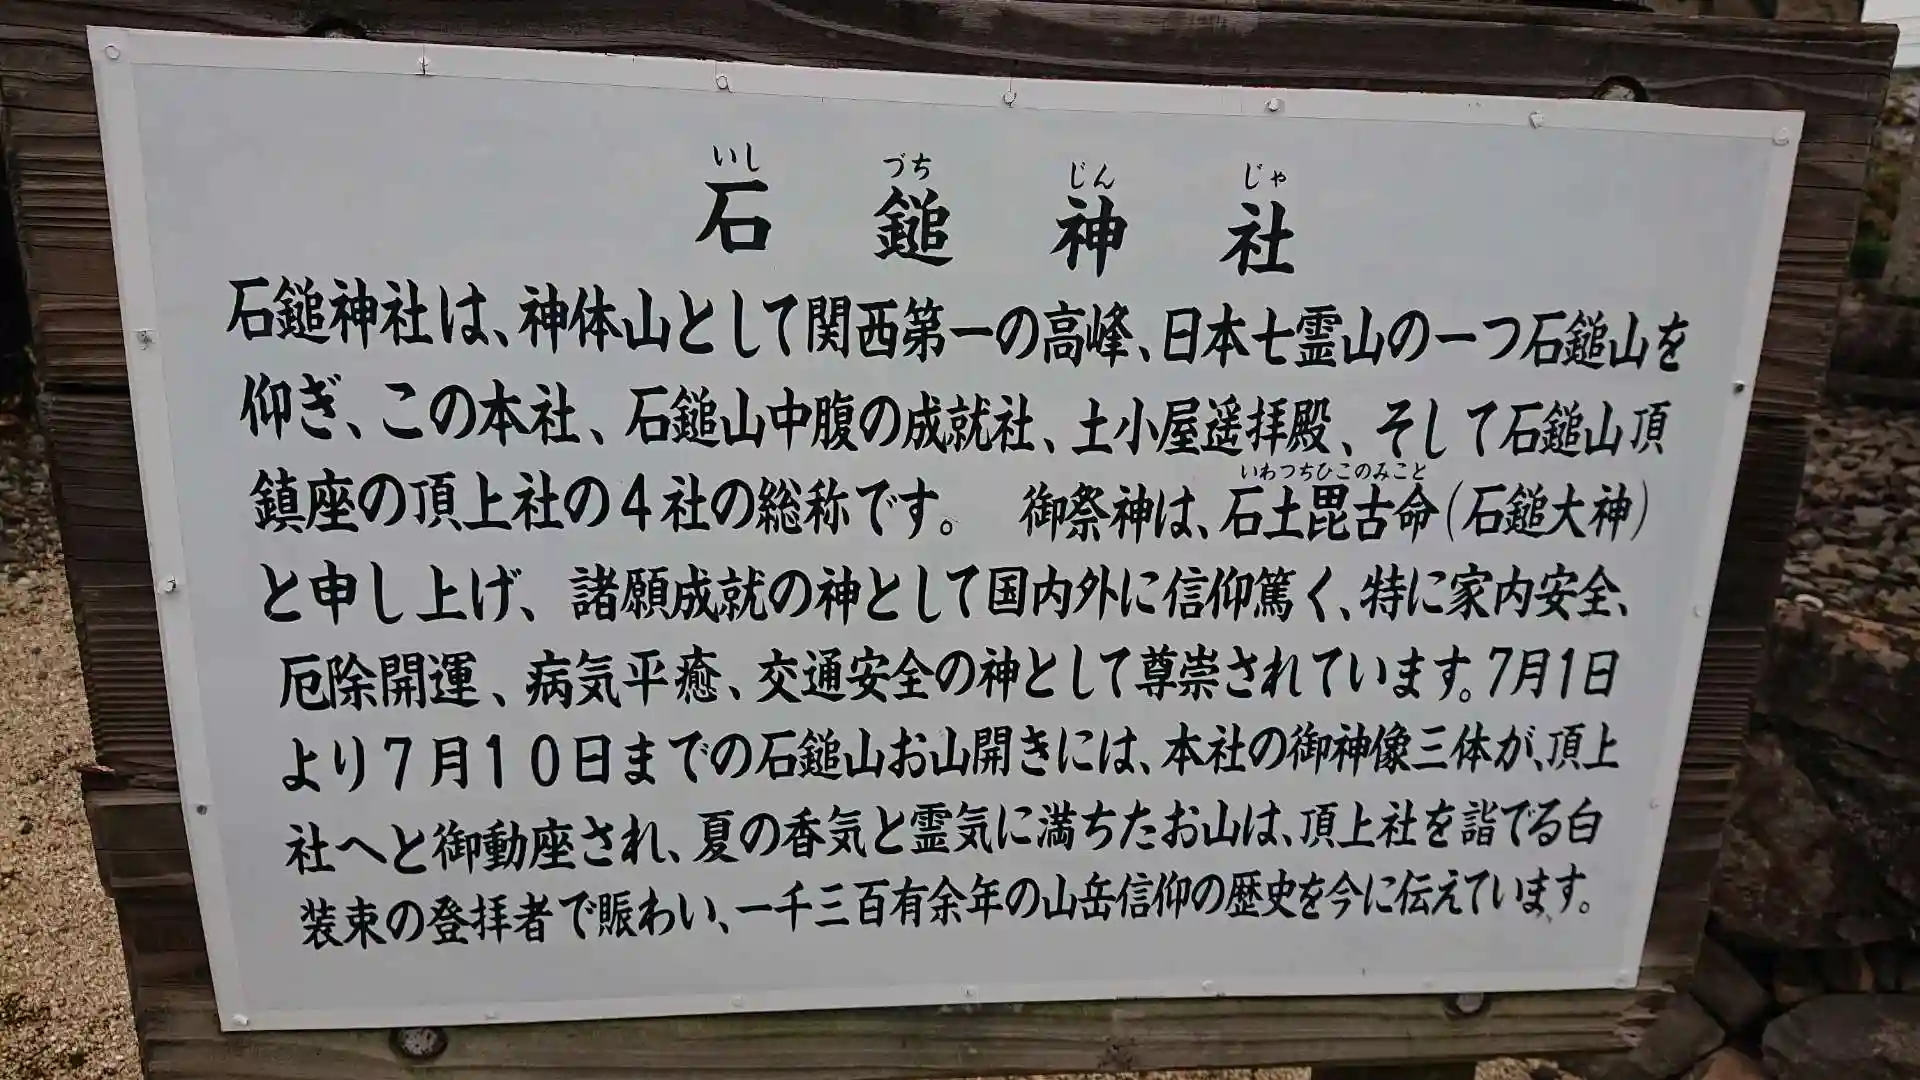 いし づち じん じゃ
石鎚神社
石鎚神社は、神体山として関西第一の高峰、日本七霊山の一つ石鎚山を
仰ぎ、この本社、石鎚山中腹の成就社、土小屋遥拝殿、そして石鎚山頂
いわつちひこのみこと
鎮座の頂上社の4社の総称です。 御祭神は、石土毘古命(石鎚大神)
と申し上げ、諸願成就の神として国内外に信仰篤く、特に家内安全、
厄除開運、病気平癒、交通安全の神として尊崇されています。7月1日
より7月10日までの石鎚山お山開きには、本社の御神像三体が、頂上
社へと御動座され、夏の香気と霊気に満ちたお山は、頂上社を詣でる白
装束の登拝者で賑わい、一千三百有余年の山岳信仰の歴史を今に伝えています。